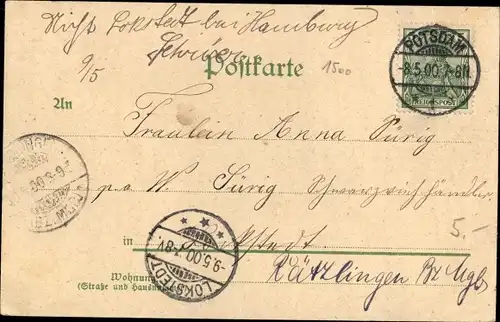 Nicht Lokstedt bei Hamburg
9/5
Postkarte
1500
POTSDAM
-8.5.00.7-8N.
REICHSPOST
An
Fräulein Anna Sürig
p.a. W. Sürig
in Lokstedt
5.-
Rätzlingen Bz Mgb.
Wohnung
(Straße und Hausnummer)
LOKSTEDT
-9.5.00.7-8V.